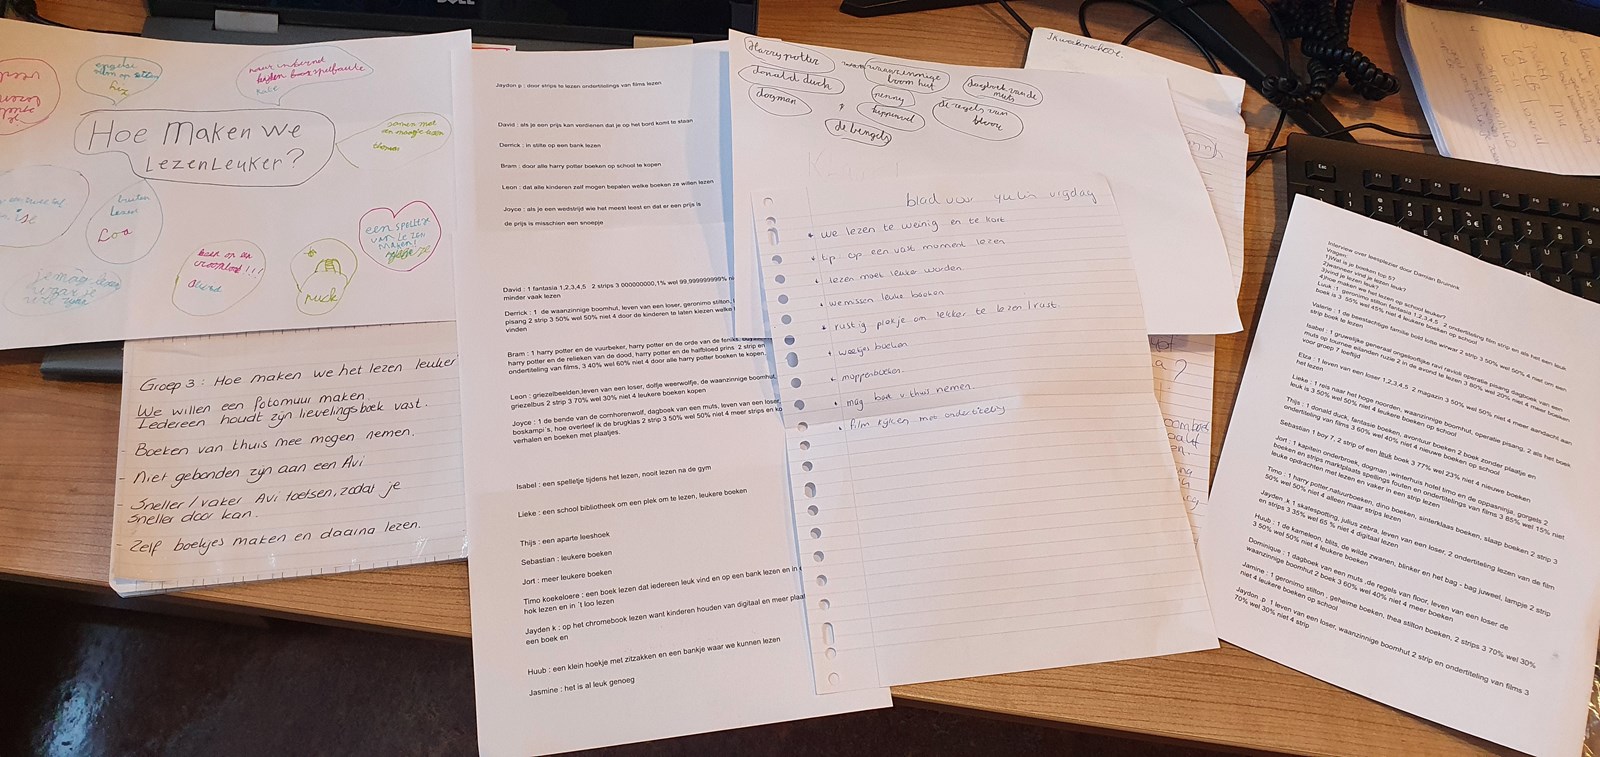 DELL
HOE MAKEN WE
LEZEN LEUKER?
samen met
een maatje lezen
buiten
lezen
Loa
een spelletje
van lezen
maken!
ruck
Groep 3: Hoe maken we het lezen leuker
We willen een fotomuur maken.
Iedereen houdt zijn lievelingsboek vast.
- Boeken van thuis mee mogen nemen.
- Niet gebonden zijn aan een Avi
- Sneller/vaker Avi toetsen, zodat je
sneller door kan.
- Zelf boekjes maken en daarna lezen.
Jaydon p : door strips te lezen ondertitelings van films lezen
David : als je een prijs kan verdienen dat je op het bord komt te staan
Derrick : in stilte op een bank lezen
Bram : door alle harry potter boeken op school te kopen
Leon : dat alle kinderen zelf mogen bepalen welke boeken ze willen lezen
Joyce : als je een wedstrijd wie het meest leest en dat er een prijs is
de prijs is misschien een snoepje
David : 1 fantasia 1,2,3,4,5 2 strips 3 000000000,1% wel 99,999999999%
minder vaak lezen
Derrick : 1 de waanzinnige boomhut, leven van een loser, geronimo stilton,
pisang 2 strip 3 50% wel 50% niet 4 door de kinderen te laten kiezen welke
vinden
Bram : 1 harry potter en de vuurbeker, harry potter en de orde van de feniks,
harry potter en de relieken van de dood, harry potter en de halfbloed prins. 2 strip en
ondertiteling van films, 3 40% wel 60% niet 4 door alle harry potter boeken te kopen.
Leon : griezelbeelden,leven van een loser, dolfje weerwolfje, de waanzinnige boomhut,
griezelbus 2 strip 3 70% wel 30% niet 4 leukere boeken kopen
Joyce : 1 de bende van de cornhorenwolf, dagboek van een muts, leven van een loser,
boskampi's, hoe overleef ik de brugklas 2 strip 3 50% wel 50% niet 4 meer strips en
verhalen en boeken met plaatjes.
Isabel : een spelletje tijdens het lezen, nooit lezen na de gym
Lieke : een school bibliotheek om een plek om te lezen, leukere boeken
Thijs : een aparte leeshoek
Sebastian : leukere boeken
Jort : meer leukere boeken
Timo koekeloere : een boek lezen dat iedereen leuk vind en op een bank lezen en in
hok lezen en in `t loo lezen
Jayden k : op het chromebook lezen want kinderen houden van digitaal en meer
een boek en
Huub : een klein hoekje met zitzakken en een bankje waar we kunnen lezen
Jasmine : het is al leuk genoeg
Harry potter
donald duck
dogman
waanzinnige
boom hut
penny
kippenvel
dagboek van de
muts
de regels van
floor
de bengels
blad voor Yulin vrijdag
• we lezen te weinig en te kort
• tip. op een vast moment lezen
• lezen moet leuker worden
• we missen leuke boeken
• rustig plekje om lekker te lezen/rust.
• weetjes boeken
• moppenboeken.
• mag boek v. thuis nemen.
• film kijken met ondertiteling
Interview over leesplezier door Damian Bruinink
Vragen:
1)Wat is je boeken top 5?
2)wanneer vind je lezen leuk?
3)vind je lezen leuk?
4)Hoe maken we het lezen op school leuker?
Luuk :1 geronimo stilton fantasia 1,2,3,4,5 2 ondertiteling film strip en als het een leuk
boek is 3 55% wel 45% niet 4 leukere boeken op school
Valerie : 1 de beestachtige familie bold lotte winwar 2 strip 3 50% wel 50% 4 niet om een
strip boek te lezen
Isabel : 1 gruwelijke generaal ongelooflijke ravi ravioli operatie pisang dagboek van een
muts op tournee eilanden ruzie 2 in de avond te lezen 3 80% wel 20% niet 4 meer boeken
voor groep 7 leeftijd
Elza : 1 leven van een loser 1,2,3,4,5 2 magazin 3 50% wel 50% niet 4 meer aandacht aan
het lezen
Lieke : 1 reis naar het hoge noorden, waanzinnige boomhut, operatie pisang, 2 als het boek
leuk is 3 50% wel 50% niet 4 leukere boeken op school
Thijs : 1 donald duck, fantasie boeken, avontuur boeken 2 boek zonder plaatje en
ondertiteling van films 3 60% wel 40% niet 4 nieuwe boeken op school
Sebastian 1 boy 7, 2 strip of een leuk boek 3 77% wel 23% niet 4 nieuwe boeken
Jort : 1 kapitein onderbroek, dogman ,winterhuis hotel timo en de oppasninja, gorgels 2
boeken en strips marktplaats spellings fouten en ondertitelings van films 3 85% wel 15% niet
leuke opdrachten met lezen en vaker in een strip lezen
Timo : 1 harry potter,natuurboeken, dino boeken, sinterklaas boeken, slaap boeken 2 strip 3
50% wel 50% niet 4 alleen maar strips lezen
Jayden_k 1 skatespotting, julius zebra, leven van een loser, 2 ondertiteling lezen van de film
en strips 3 35% wel 65 % niet 4 digitaal lezen
Huub : 1 de kameleon, blits, de wilde zwanen, blinker en het bag - bag juweel, lampje 2 strip
3 50% wel 50% niet 4 leukere boeken
Dominique : 1 dagboek van een muts ,de regels van floor, leven van een loser de
waanzinnige boomhut 2 boek 3 60% wel 40% niet 4 meer boeken
Jamine : 1 geronimo stilton , geheime boeken, thea stilton boeken, 2 strips 3 70% wel 30%
niet 4 leukere boeken op school
Jaydon .p .1 leven van een loser, waanzinnige boomhut 2 strip en ondertiteling van films 3
70% wel 30% niet 4 strip